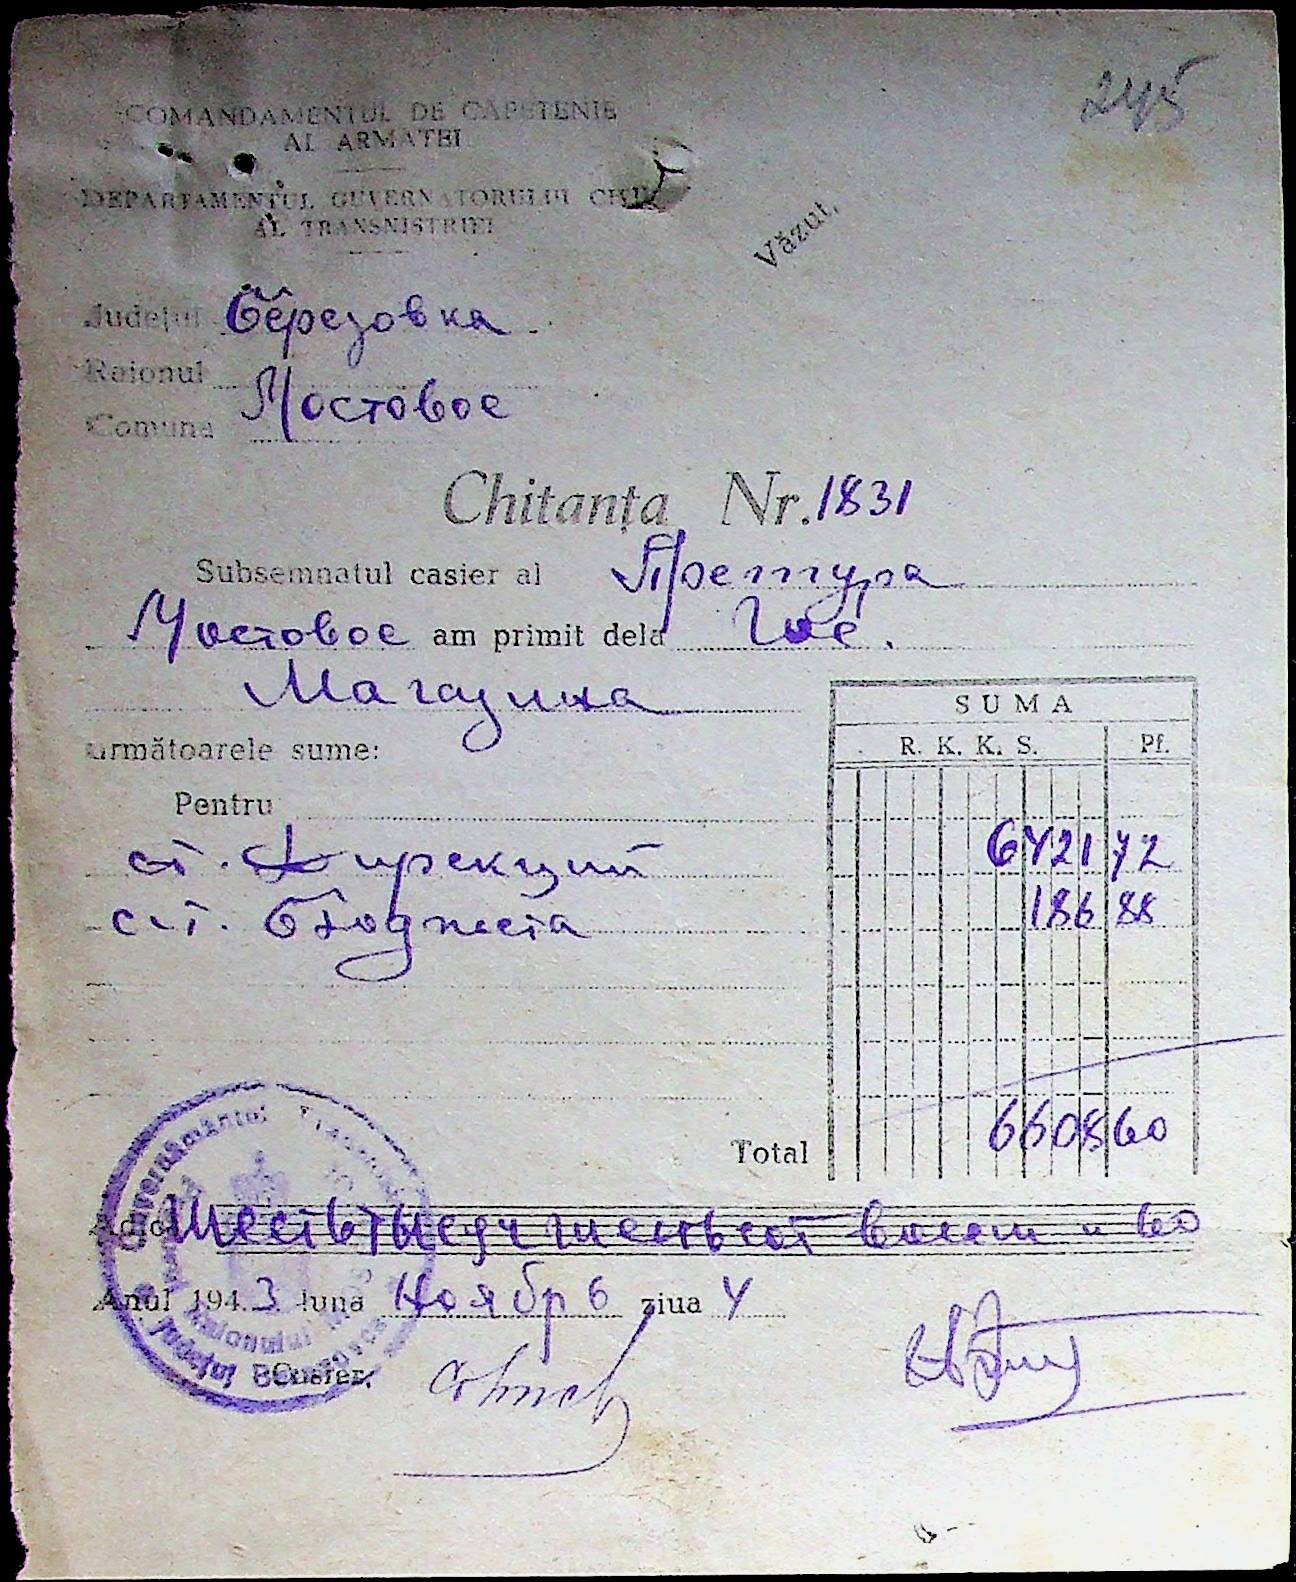 245
COMANDAMENTUL DE CAPETENIE
AL ARMATEI
DEPARTAMENTUL GUVERNATORULUI CIVIL
AL TRANSNISTRIEI
Văzut,
Județul Березовка
Raionul
Comuna Мостовое
Chitanța Nr. 1831
Subsemnatul casier al Претура
Мостовое am primit dela Гос.
Магазина
următoarele sume:
SUMA
R. K. K. S. Pf.
Pentru
ст. Дирекции 6421 72
ст. бюджета 186 88
Total 6608 60
Adică Шесть тысяч шестьсот восем и 60
Anul 1943 luna Ноябрь ziua 4
Casier,
Guvernământul Transnistriei
Raionului
Județul